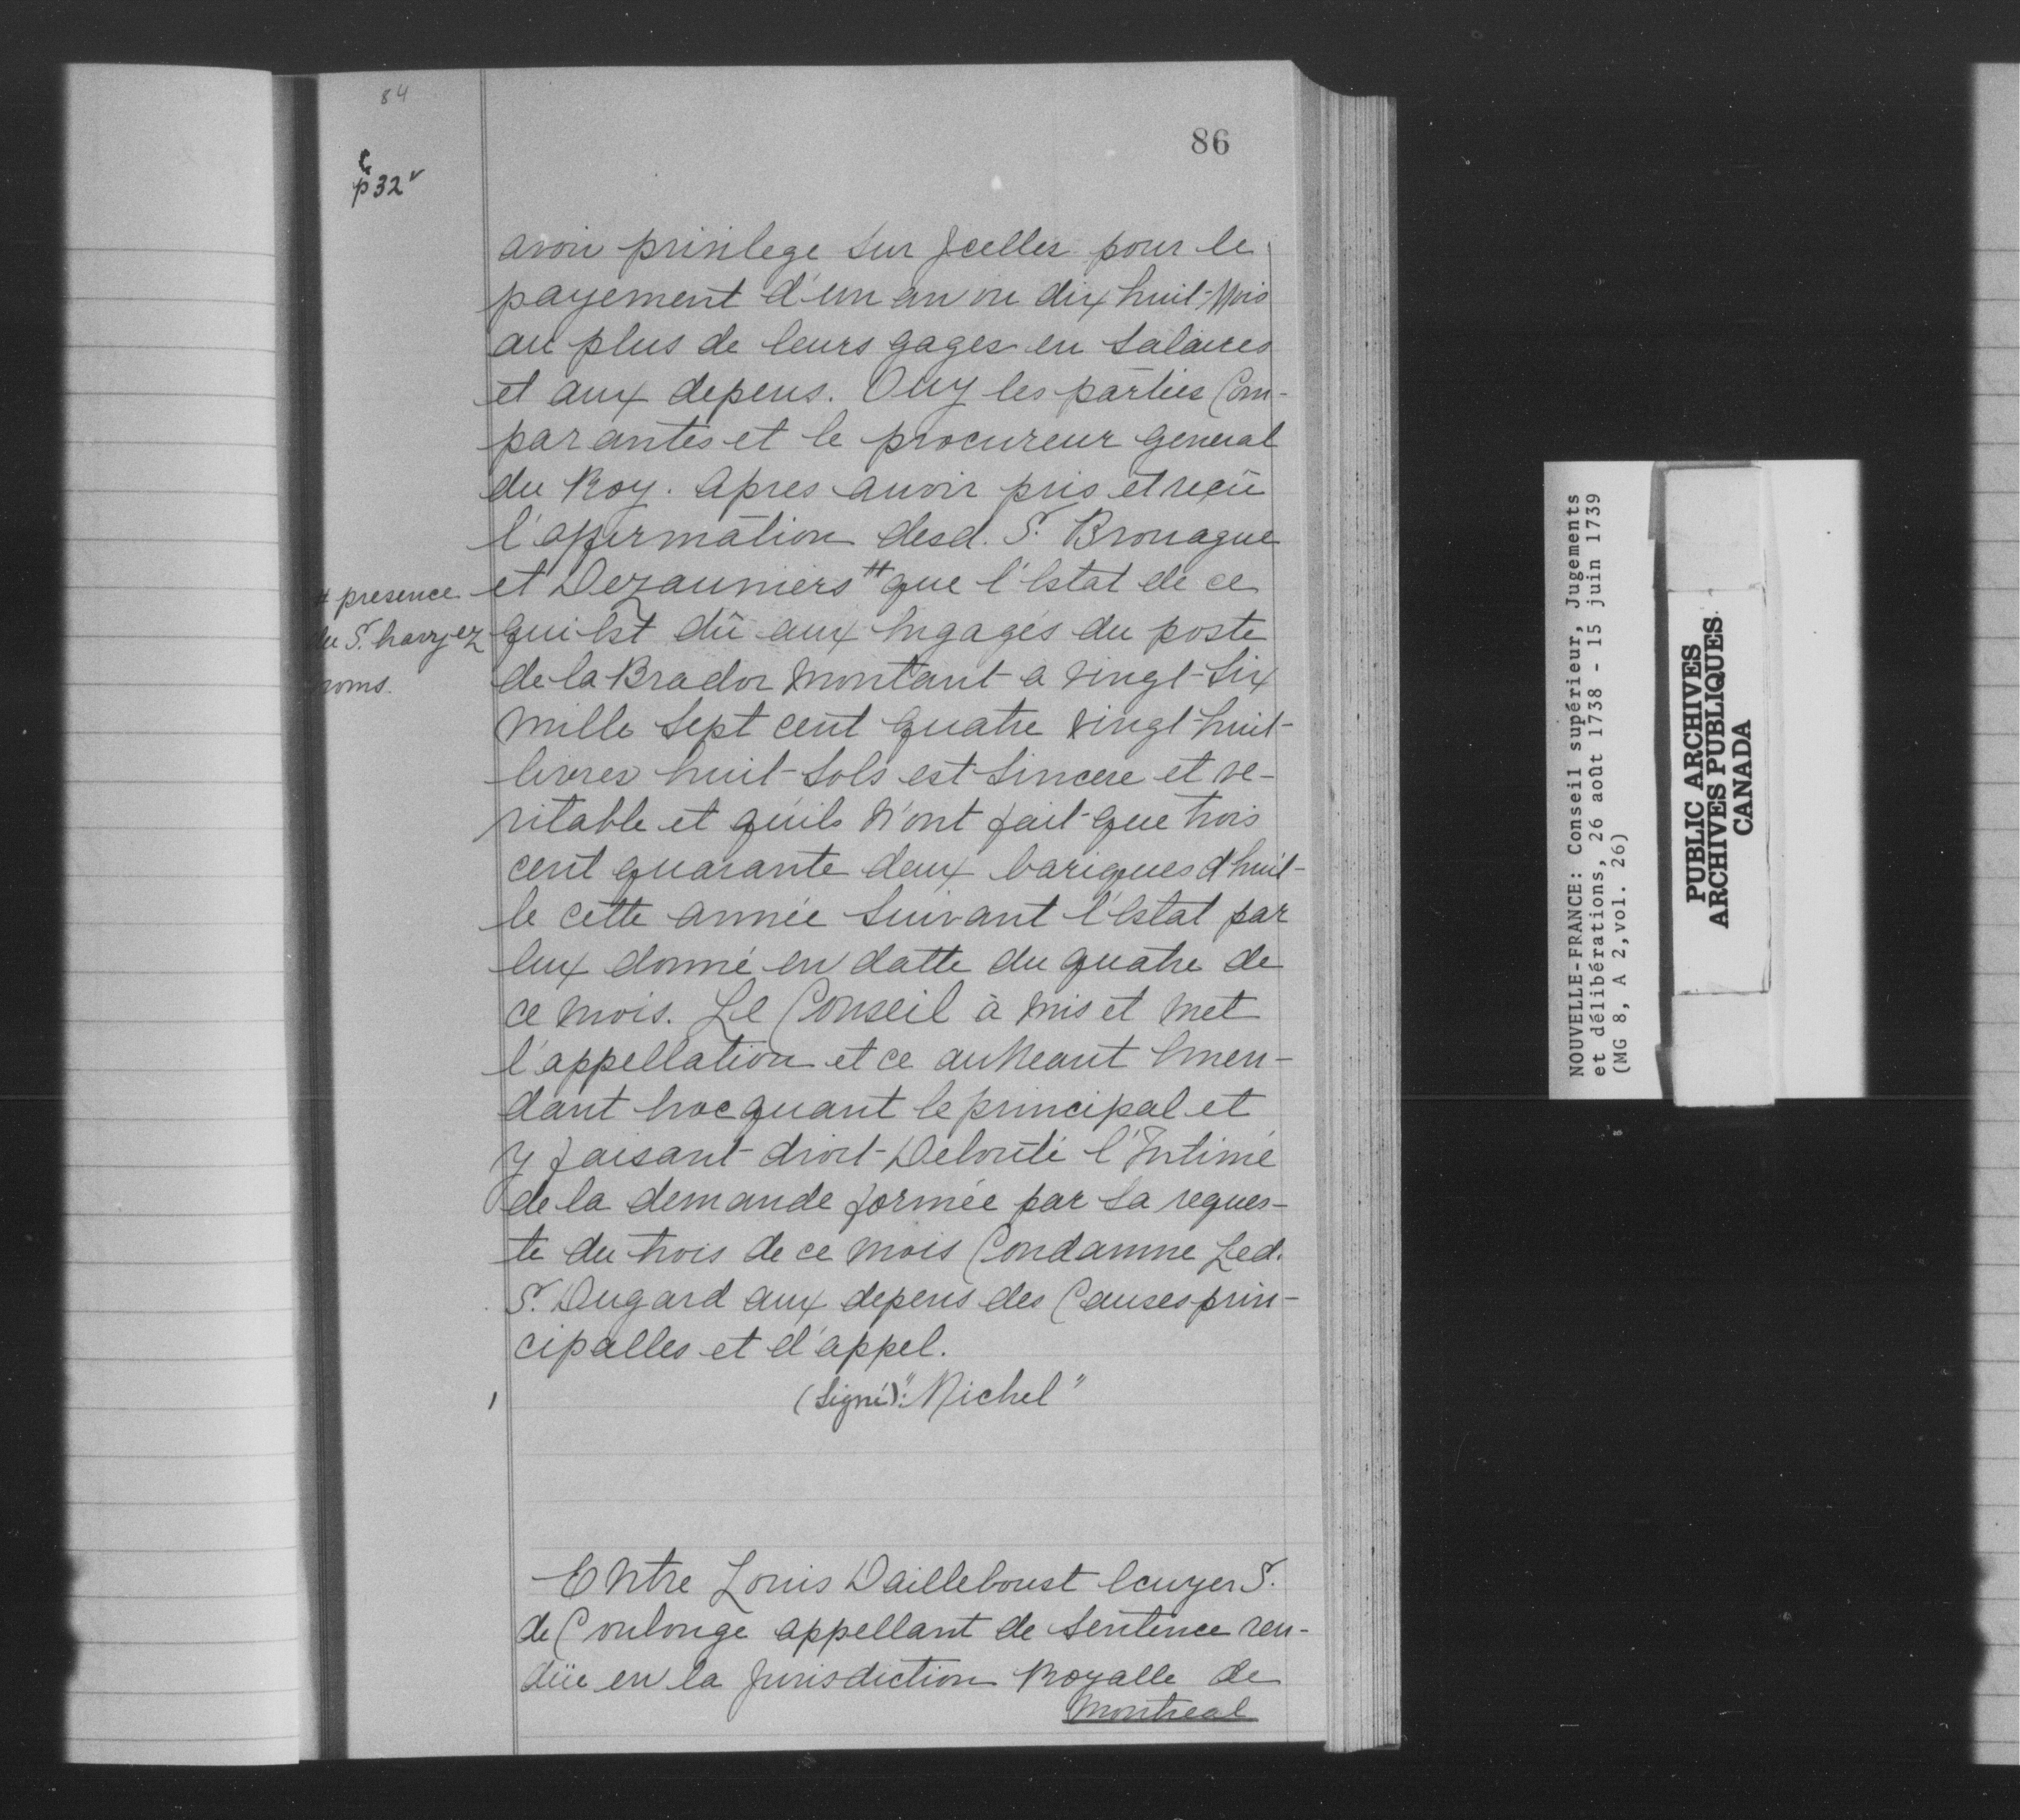 84
86
p 32v
avoir privilege sur Jcelles pour le
payement d'un an ou dix huit Mois
au plus de leurs gages ou salaires
et aux depens. Ouy les parties Com-
parantes et le procureur general
du Roy. Apres avoir pris et reçü
l'affirmation desd. S. Brouague
et Dezauniers # que l'Estat de ce
# presence
du S. havy ez
noms.
qui Est dû aux Engagés du poste
de la Brador Montant a vingt-six
Mille Sept cent quatre vingt-huit-
livres huit Sols est Sincere et ve-
ritable et qu'ils N'ont fait que trois
cent quarante deux bariques d'huil-
le cette année suivant l'Estat par
Eux donné en datte du quatre de
ce Mois. Le Conseil à Mis et Met
l'appellation et ce au Neant Emen-
dant Evoquant le principal et
y faisant droit Deboute l'Intimé
de la demande formée par Sa reques-
te du trois de ce Mois Condamne Led.
S. Dugard aux depens des Causes prin-
cipalles et d'appel.
(Signé): "Michel"
Entre Louis Dailleboust Ecuyer S.
de Coulonge appellant de Sentence ren-
düe en la Jurisdiction Royalle de
Montreal
NOUVELLE-FRANCE: Conseil supérieur, Jugements
et délibérations, 26 août 1738 - 15 juin 1739
(MG 8, A 2,vol. 26)
PUBLIC ARCHIVES
ARCHIVES PUBLIQUES
CANADA